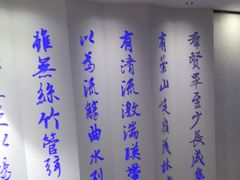 群賢畢至少長咸集
有崇山峻嶺茂林
有清流激湍映帶
以為流觴曲水列
雖無絲竹管弦